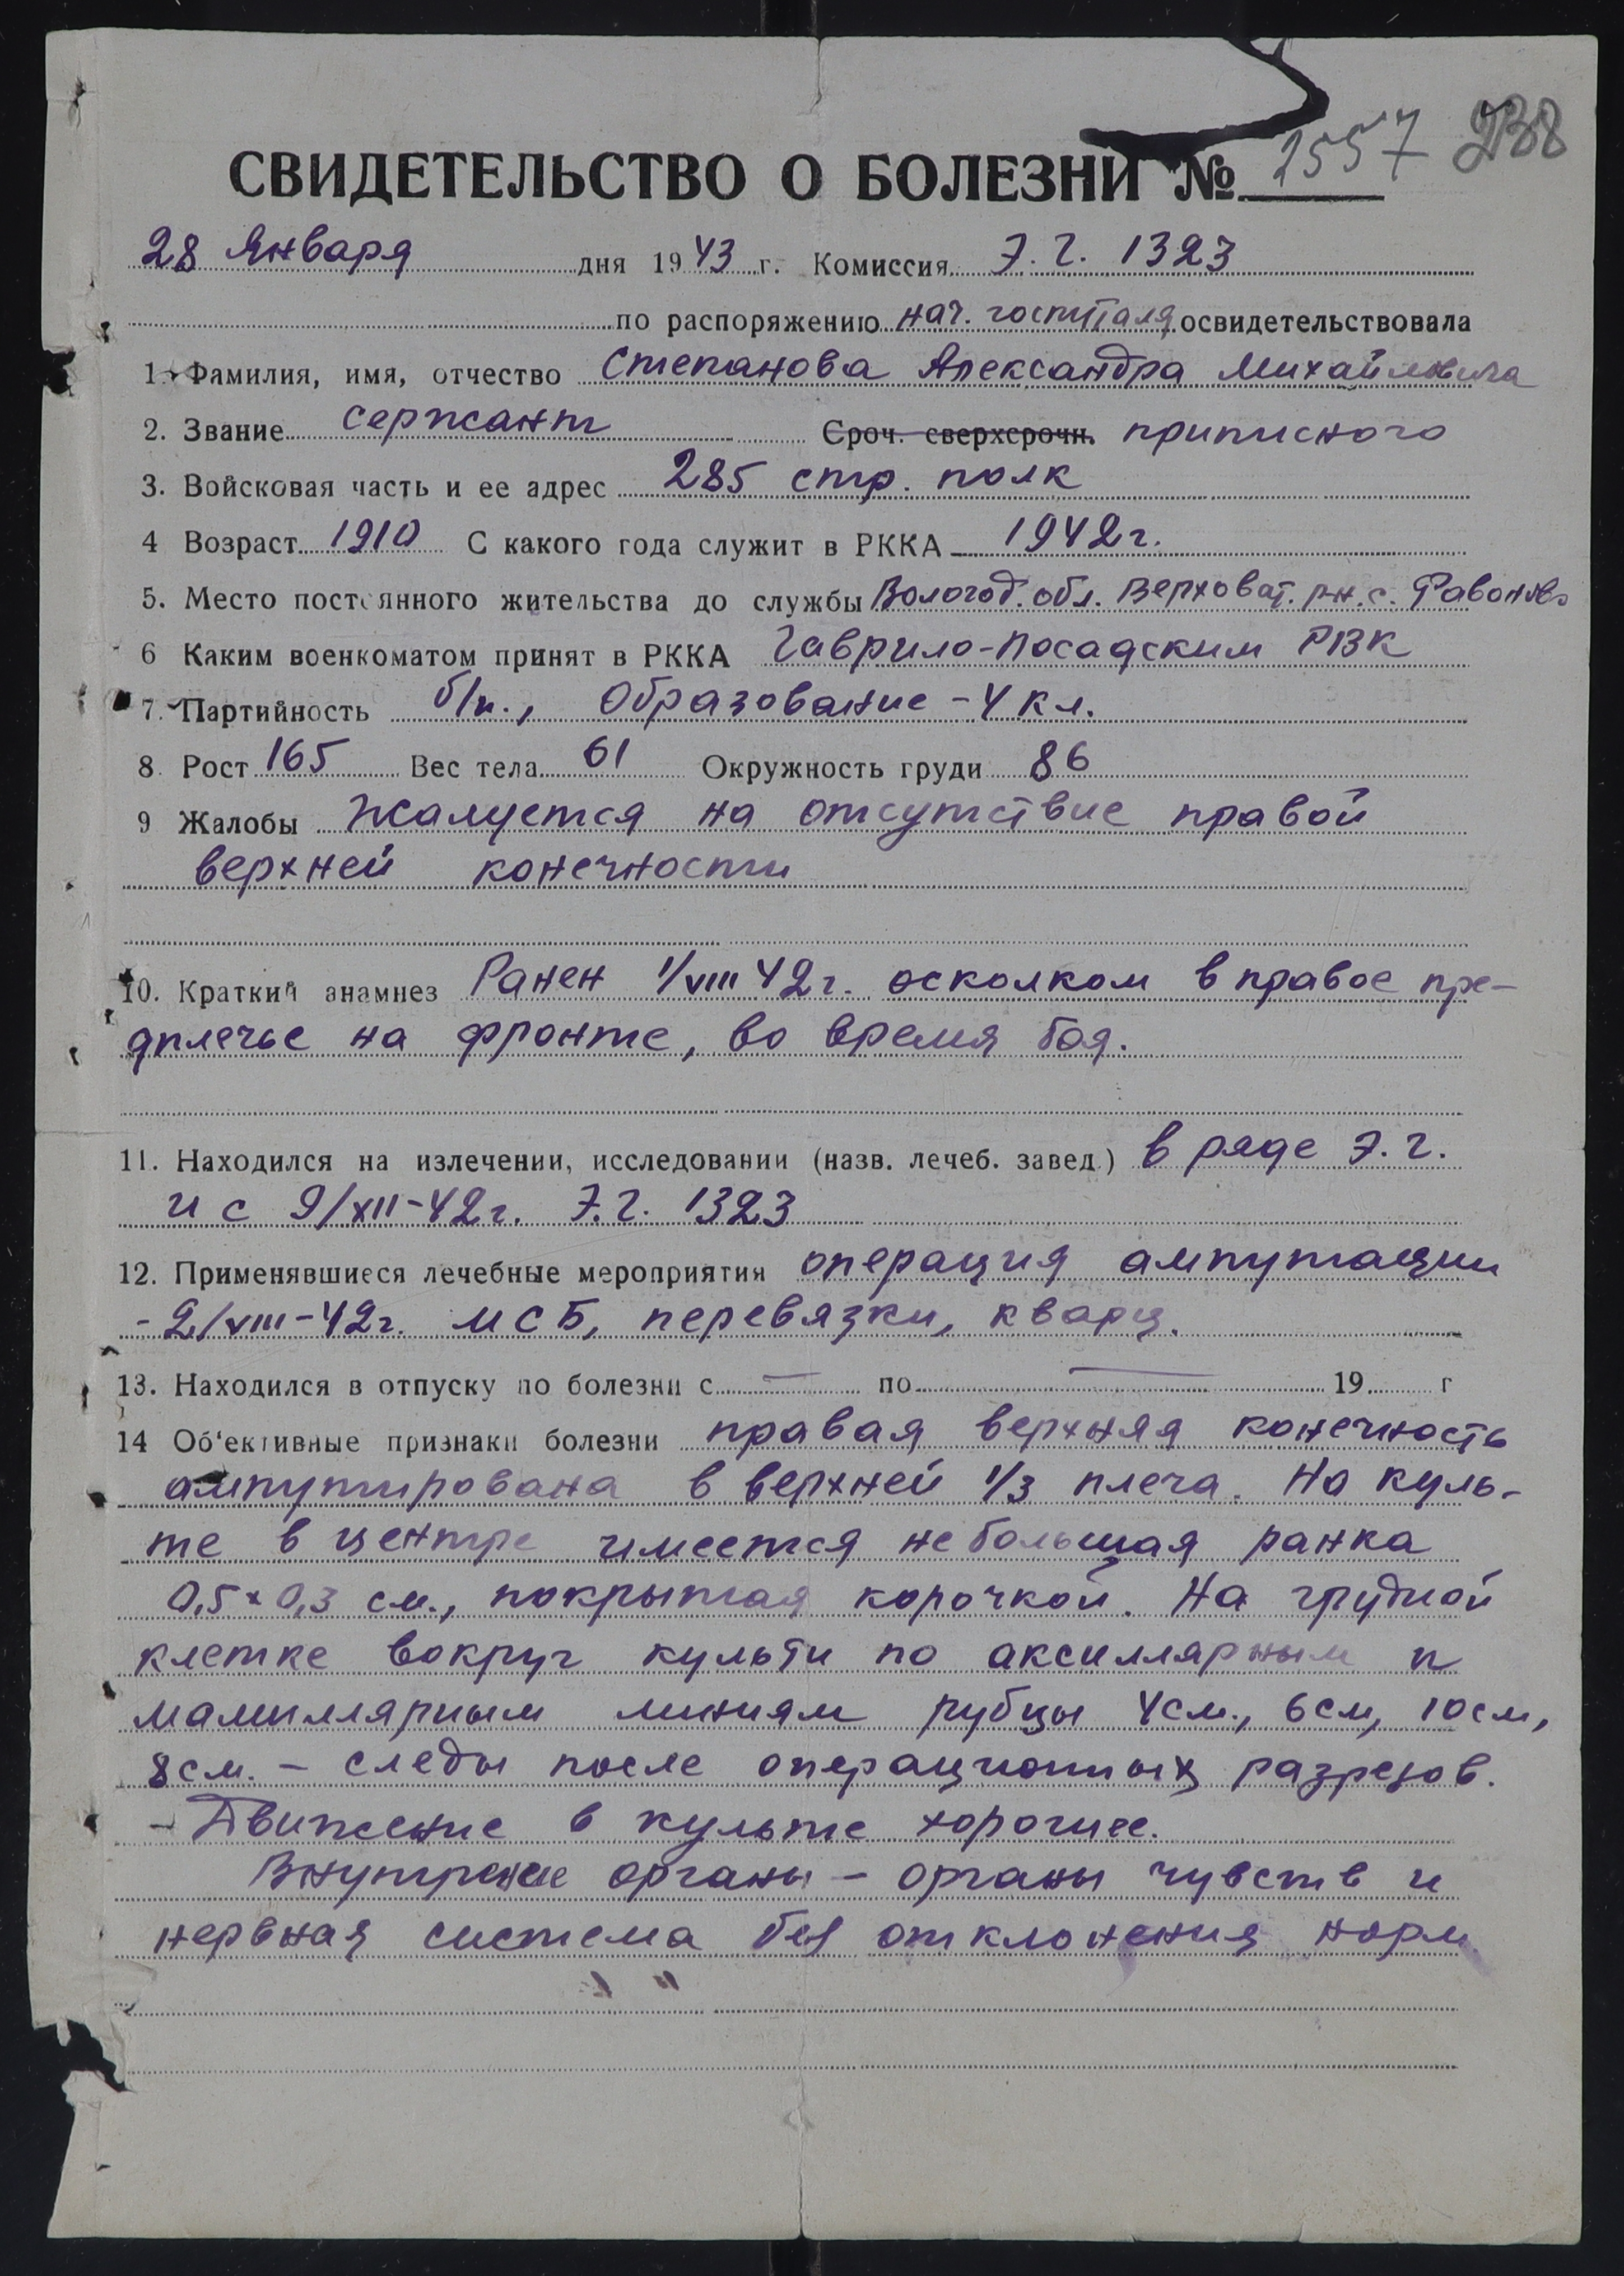 2557 238
СВИДЕТЕЛЬСТВО О БОЛЕЗНИ №
28 Января дня 1943 г. Комиссия Э. Г. 1323
по распоряжению нач. госпиталя освидетельствовала
1. Фамилия, имя, отчество Степанова Александра Михайловича
2. Звание сержант Сроч. сверхсрочн. приписного
3. Войсковая часть и ее адрес 285 стр. полк
4 Возраст 1910 С какого года служит в РККА 1942г.
5. Место постоянного жительства до службы Вологод. обл. Верховат. рн. с.
6 Каким военкоматом принят в РККА Гаврило-Посадским РВК
7. Партийность б/п., Образование - 4 кл.
8. Рост 165 Вес тела 61 Окружность груди 86
9 Жалобы Жалуется на отсутствие правой
верхней конечности
10. Краткий анамнез Ранен 1/VIII 42г. осколком в правое пре-
дплечье на фронте, во время боя.
11. Находился на излечении, исследовании (назв. лечеб. завед.) в ряде Э. Г.
и с 9/XII-42г. Э. Г. 1323
12. Применявшиеся лечебные мероприятия операция ампутации
- 2/VIII-42г. МСБ, перевязки, кварц.
13. Находился в отпуску по болезни с — по — 19 г
14 Об'ективные признаки болезни правая верхняя конечность
ампутирована в верхней 1/3 плеча. На куль-
те в центре имеется небольшая ранка
0,5×0,3 см., покрытая корочкой. На грудной
клетке вокруг культи по аксиллярным и
мамиллярным линиям рубцы 4см., 6см, 10см,
8см. - следы после операционных разрезов.
- Движение в культе хорошее.
Внутренние органы - органы чувств и
нервная система без отклонения норм